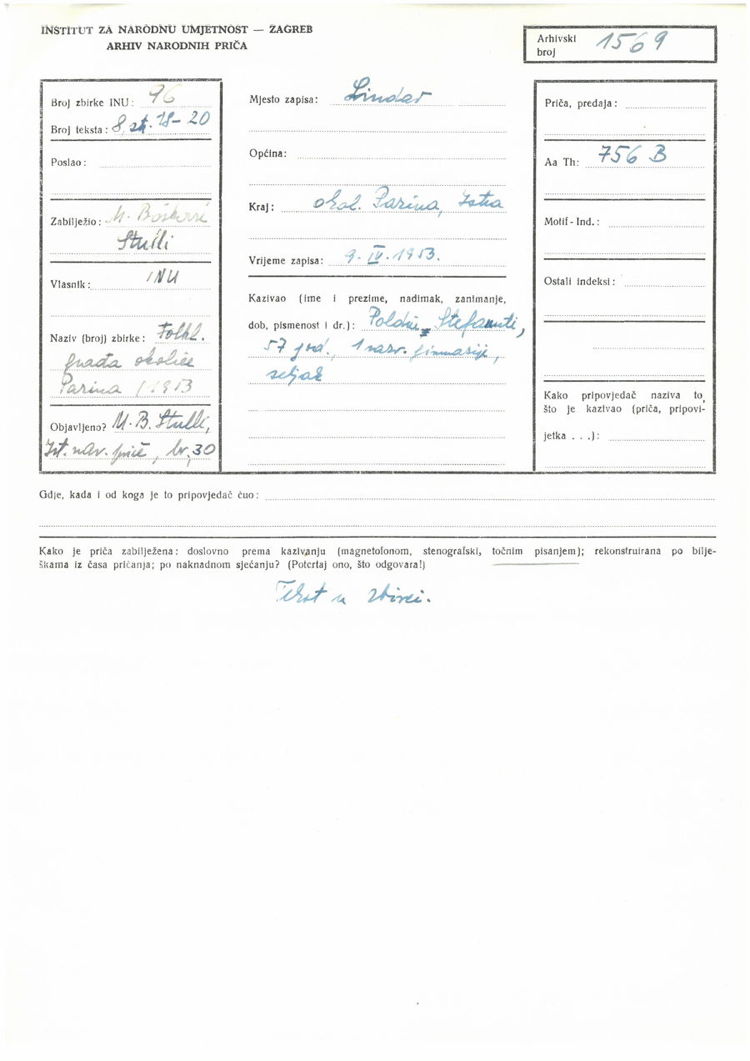 INSTITUT ZA NARODNU UMJETNOST — ZAGREB
ARHIV NARODNIH PRIČA
Arhivski broj 1569
Broj zbirke INU: 76
Broj teksta: 8, st. 18-20
Poslao:
Zabilježio: M. Bošković
Stulli
Vlasnik: INU
Naziv (broj) zbirke: Folkl.
građa okolice
Pazina 1953
Objavljeno? M. B. Stulli,
Ist. nar. priče, br. 30
Mjesto zapisa: Lindar
Općina:
Kraj: okol. Pazina, Istra
Vrijeme zapisa: 9. IV. 1953.
Kazivao (ime i prezime, nadimak, zanimanje,
dob, pismenost i dr.): Stefanuti,
57 god., 1 razr. gimnazije,
seljak
Priča, predaja:
Aa Th: 756 B
Motif - Ind.:
Ostali indeksi:
Kako pripovjedač naziva to,
što je kazivao (priča, pripovi-
jetka . . .):
Gdje, kada i od koga je to pripovjedač čuo:
Kako je priča zabilježena: doslovno prema kazivanju (magnetofonom, stenografski, točnim pisanjem); rekonstruirana po bilje-
škama iz časa pričanja; po naknadnom sjećanju? (Potcrtaj ono, što odgovara!)
Tekst u zbirci.